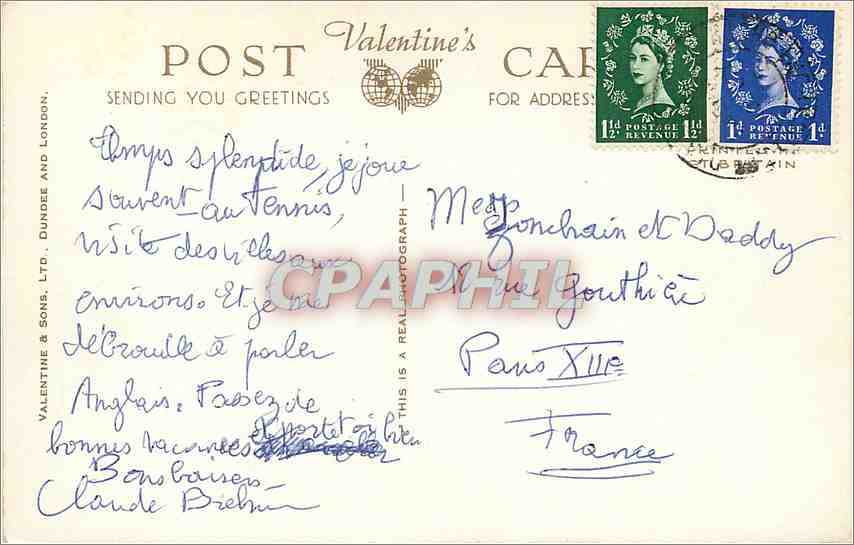 Valentine's
POST CAR
SENDING YOU GREETINGS
FOR ADDRESS
1½d POSTAGE REVENUE 1½d
1d POSTAGE REVENUE 1d
GT BRITAIN
VALENTINE & SONS, LTD., DUNDEE AND LONDON.
THIS IS A REAL PHOTOGRAPH
Temps splendide, je joue
souvent au Tennis,
visite des villes aux
environs. Et je me
débrouille à parler
Anglais. Passez de
bonnes vacances et porte toi bien
Bons baisers
Claude
et Daddy
rue Gouthière
Paris XIIIe
France
CPAPHIL